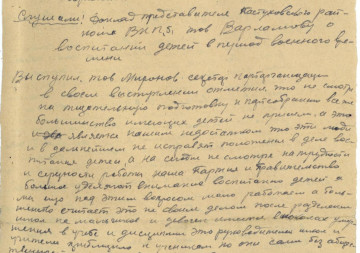 Слушали: Доклад представителя Кастуковского рай-
кома ВКП/б, тов Варламову о
воспитании детей в период военного вре-
мени
Выступил: тов Миронов секретарь парторганизации
в своем выступлении отметил, что не смотря
на тщательную подготовку к партсобранию все же
большинство имеющих детей не пришли, а это
является нашим недостатком что эти люди
и в дальнейшем не исправят положения в деле вос-
питания детей, а на счет не смотря на трудности
и серьезность работы наша Партия и Правительство
больше уделяют внимания воспитанию детей а
мы еще над этим вопросом мало работаем а боль-
шинство считает это не своим делом после разделения
школ на мальчиков и девочек имеются
в учебе и дисциплине это руководители школ и
учителя приблизили к ученикам но они сами без